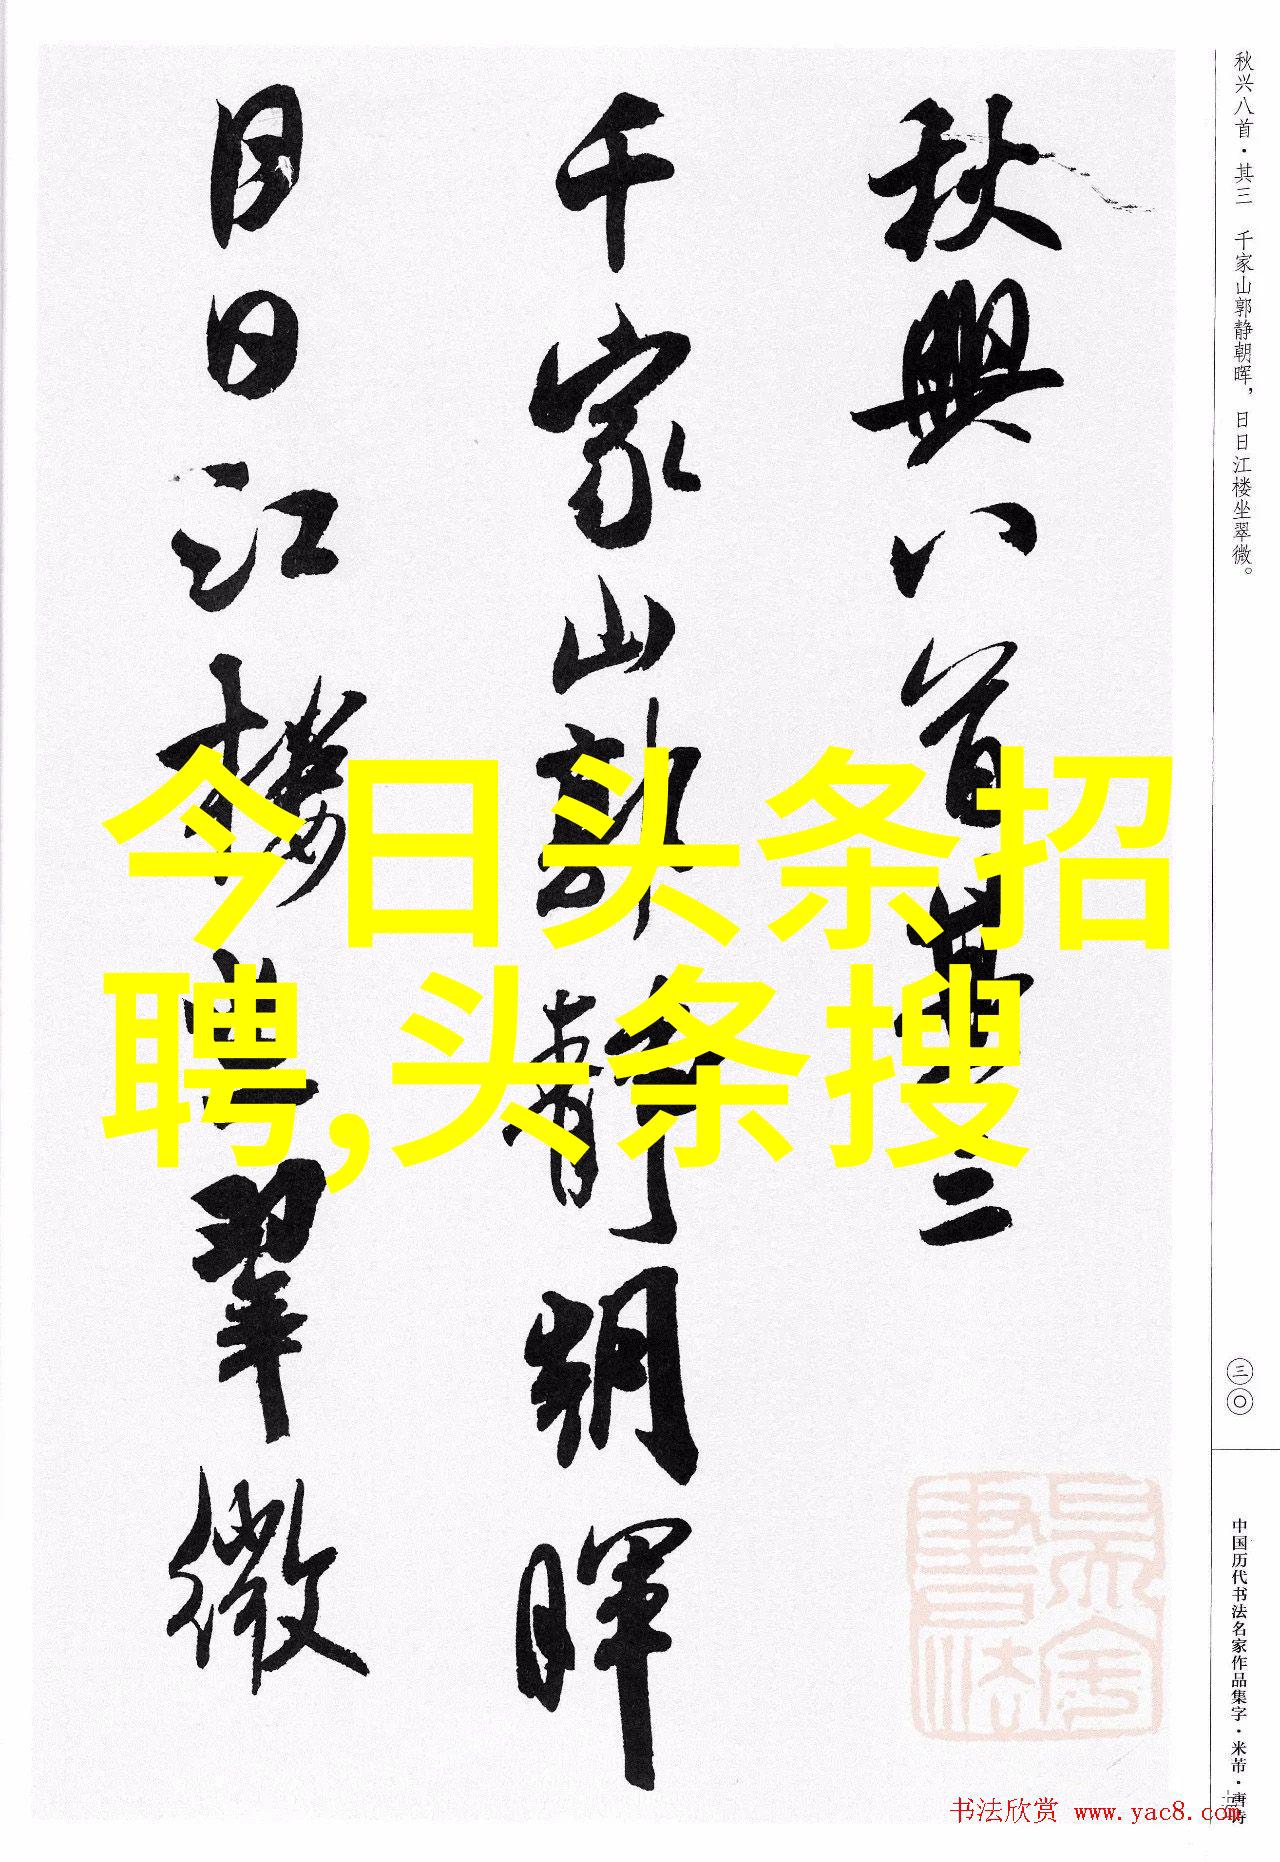 秋興八首其三
千家山郭靜朝暉
日日江樓坐翠微
今日头条招
聘,头条搜
秋兴八首·其三 千家山郭静朝晖，日日江楼坐翠微。
三〇
中国历代书法名家作品集字·米芾·唐诗
书法欣赏 www.yac8.com